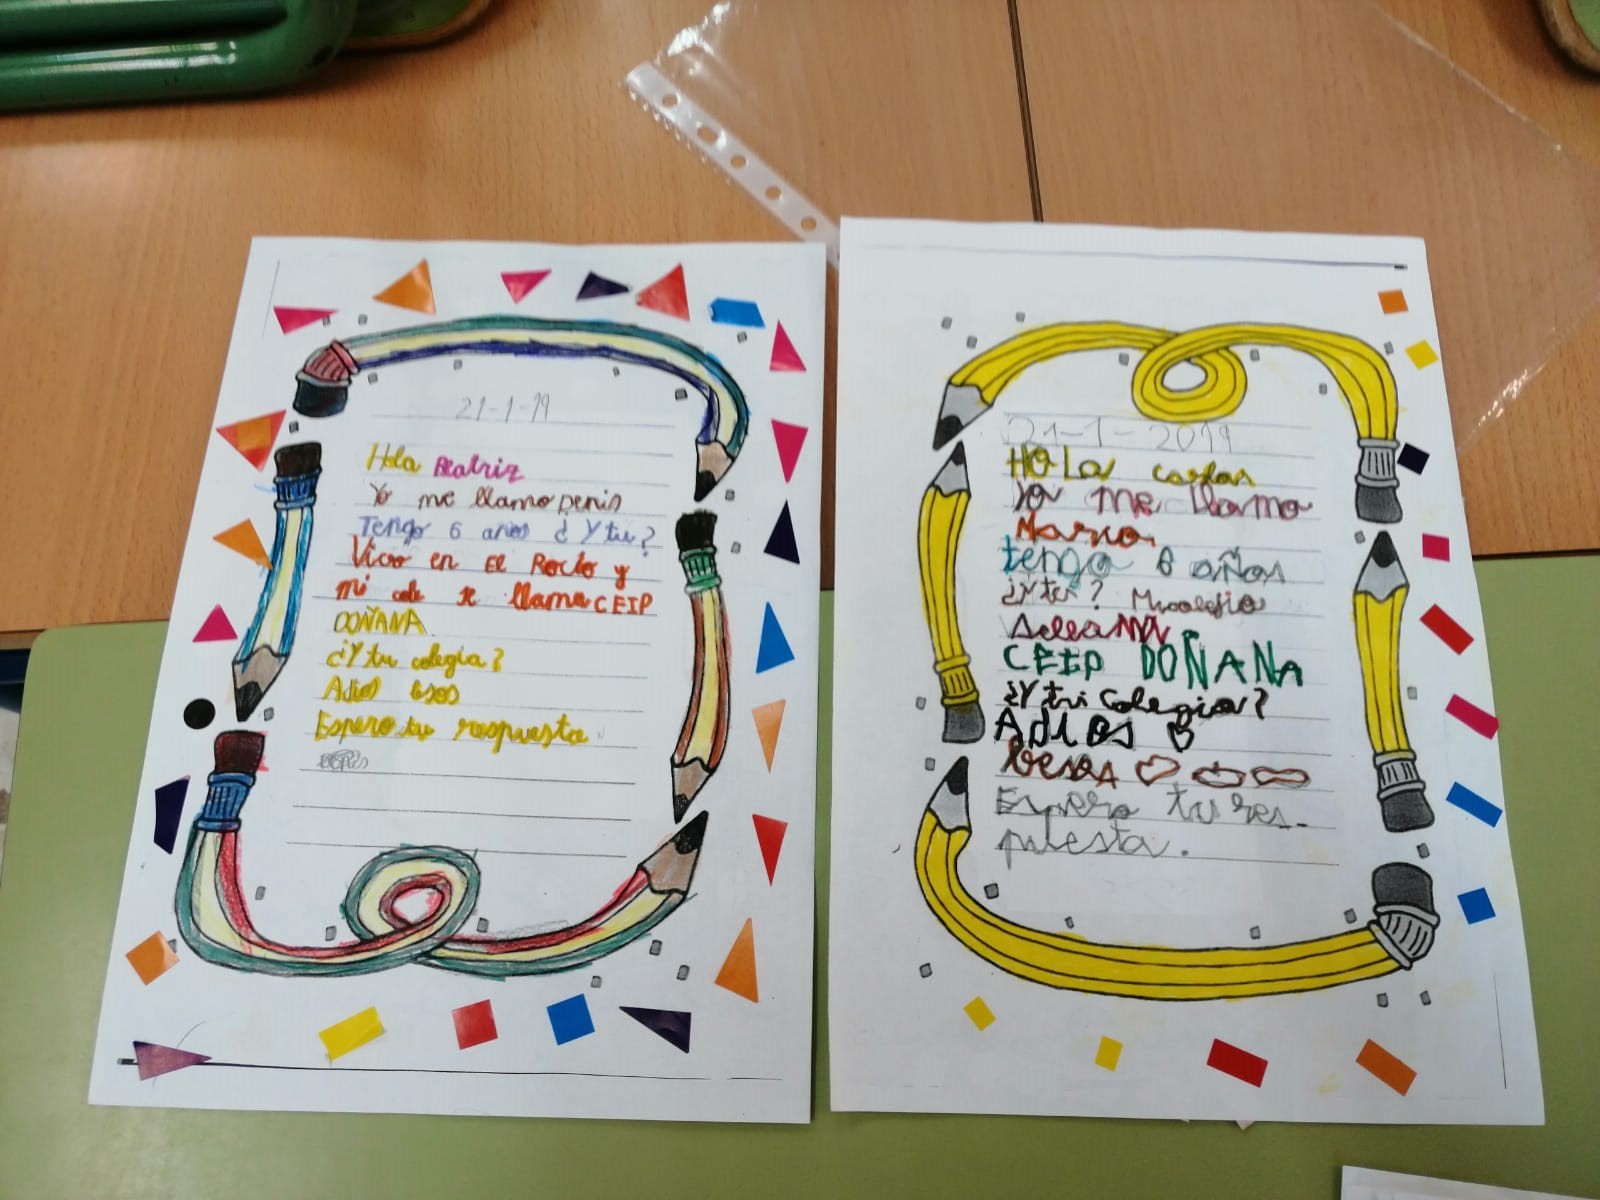 21-1-19
Hola Beatriz
Yo me llamo Denis
Tengo 6 años ¿Y tu?
Vivo en El Rocío y
mi cole se llama CEIP
DOÑANA
¿Y tu colegia?
Adios besos
Espero tu respuesta
21-1-2019
HOLA Carlos
Yo me llamo
Marco
tengo 6 años
¿Y tu? Mi colegio
se llama
CEIP DOÑANA
¿Y tu colegio?
Adios
besos
Espero tu res-
puesta.